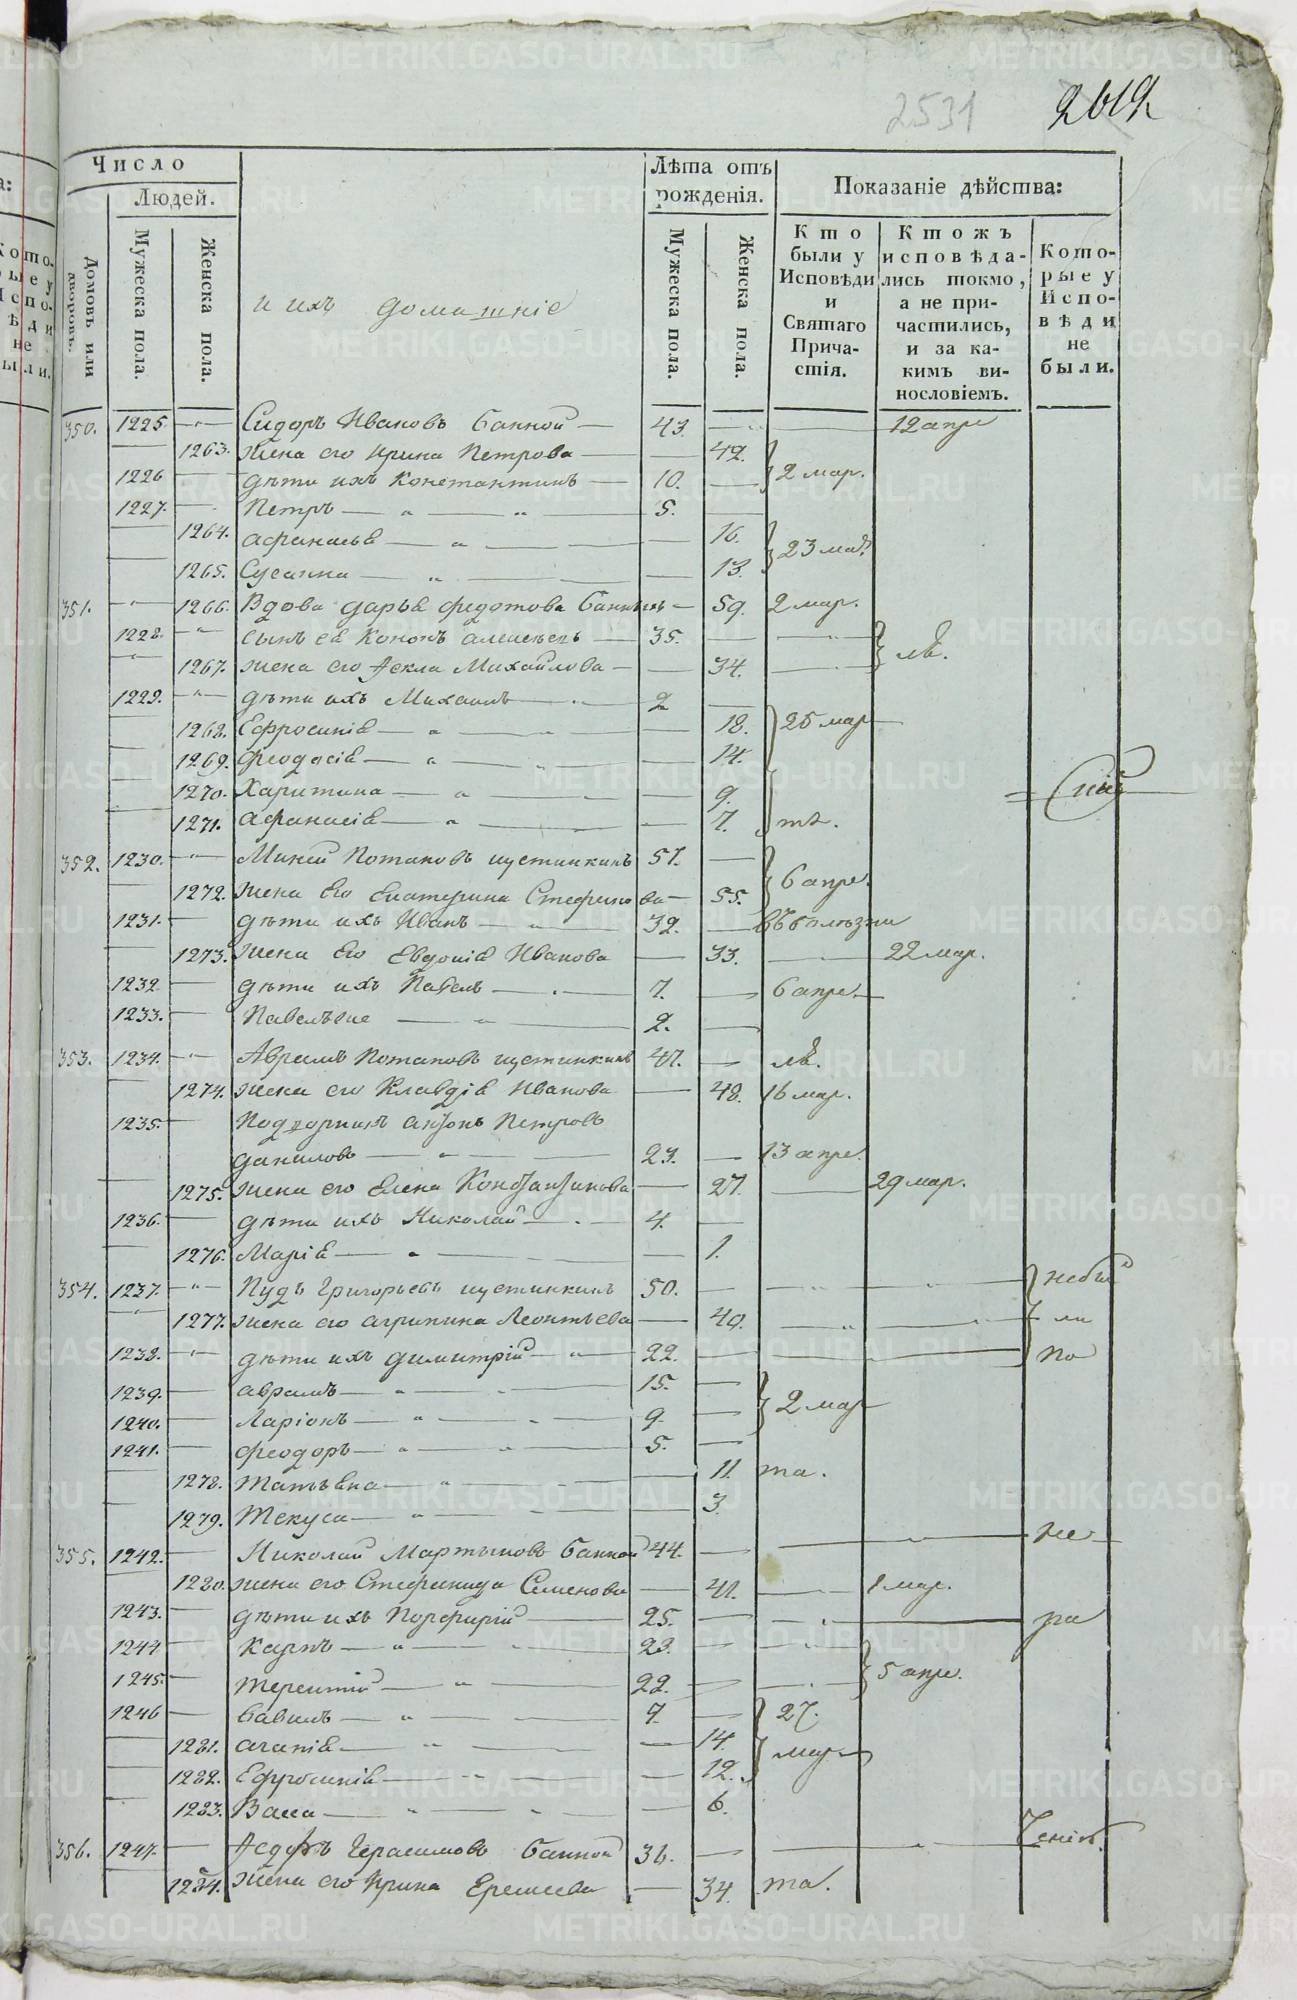 2531
2612
Число
Людей.
Домовъ или дворовъ.
Мужеска пола.
Женска пола.
и ихъ домашніе
Лѣта отъ рожденія.
Мужеска пола.
Женска пола.
Показаніе дѣйства:
Кто были у Исповѣди и Святаго Причастія.
Ктожъ исповѣдались токмо, а не причастились, и за какимъ винословіемъ.
Которые у Исповѣди не были.
350. 1225 Сидоръ Ивановъ Банной 43. 12 апре
1263. жена его Ирина Петрова 42.
1226 дѣти ихъ Константинъ 10. 2 мар.
1227. Петръ 5.
1264. Афанасьѣ 16.
1265. Сусанна 13. 23 мар
351. 1266. Вдова Дарьѣ Федотова Банныхъ 59. 2 мар.
1228. сынъ еѣ Кононъ Алексѣевъ 35.
1267. жена его Ѳекла Михайлова 34.
1229. дѣти ихъ Михаилъ 2
1268. Ефросиніѣ 18. 25 мар
1269. Феодосіѣ 14.
1270. Харитина 9.
1271. Афанасіѣ 7.
352. 1230. Миней Потаповъ Щетинкинъ 57.
1272. жена Его Екатерина Стефанова 55. 6 апре.
1231. дѣти ихъ Иванъ 32. въ болѣзни
1273. жена Его Евдокіѣ Иванова 33. 22 мар.
1232 дѣти ихъ Павелъ 7. 6 апре.
1233. Павелъ же 2.
353. 1234. Аврамъ Потаповъ Щетинкинъ 47.
1274. жена его Клавдіѣ Иванова 48. 16 мар.
1235. Подворникъ Антонъ Петровъ
Даниловъ 23. 13 апре.
1275. жена его Елена Константинова 27. 29 мар.
1236. дѣти ихъ Николай 4.
1276. Маріѣ 1.
354. 1237. Пудъ Григорьевъ Щетинкинъ 50. небы
1277. жена его Агрипина Леонтьева 40. ли
1238. дѣти ихъ Димитрій 22. по
1239. Аврамъ 15.
1240. Ларіонъ 9. 2 мар
1241. Феодоръ 5.
1278. Татьѣна 11. та.
1279. Текуса 3.
355. 1242. Николай Мартыновъ Банной 44. не
1280. жена его Стефанида Семенова 41. 1 мар.
1243. дѣти ихъ Порфирій 25. ра
1244 Карпъ 23.
1245. Терентій 22. 5 апре.
1246 Вавилъ 9. 27.
1281. Агапіѣ 14. мар
1282. Ефросиніѣ 12.
1283. Васса 6.
356. 1247. Ѳедотъ Герасимовъ Банной 36. ченію
1284. жена его Ирина Еремеева 34. та.